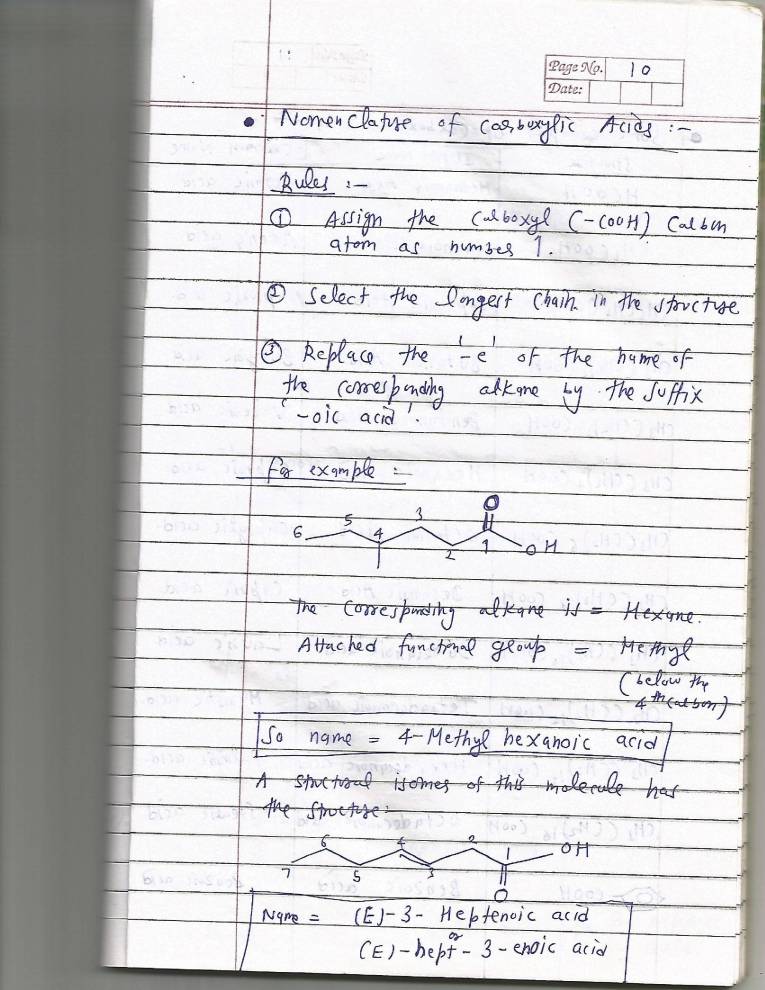 Page No. 10
Date:
• Nomenclature of carboxylic Acids :-
Rules :-
① Assign the Carboxyl (-COOH) Carbon
atom as number 1.
② Select the longest chain in the structure
③ Replace the '-e' of the name of
the corresponding alkane by the suffix
'-oic acid'.
For example :-
O
6 5 4 3 2 1 OH
The corresponding alkane is = Hexane.
Attached functional group = Methyl
(below the
4th carbon)
So name = 4-Methyl hexanoic acid
A structural isomer of this molecule has
the structure:
7 6 5 4 3 2 1 OH
O
Name = (E)-3-Heptenoic acid
or
(E)-hept-3-enoic acid